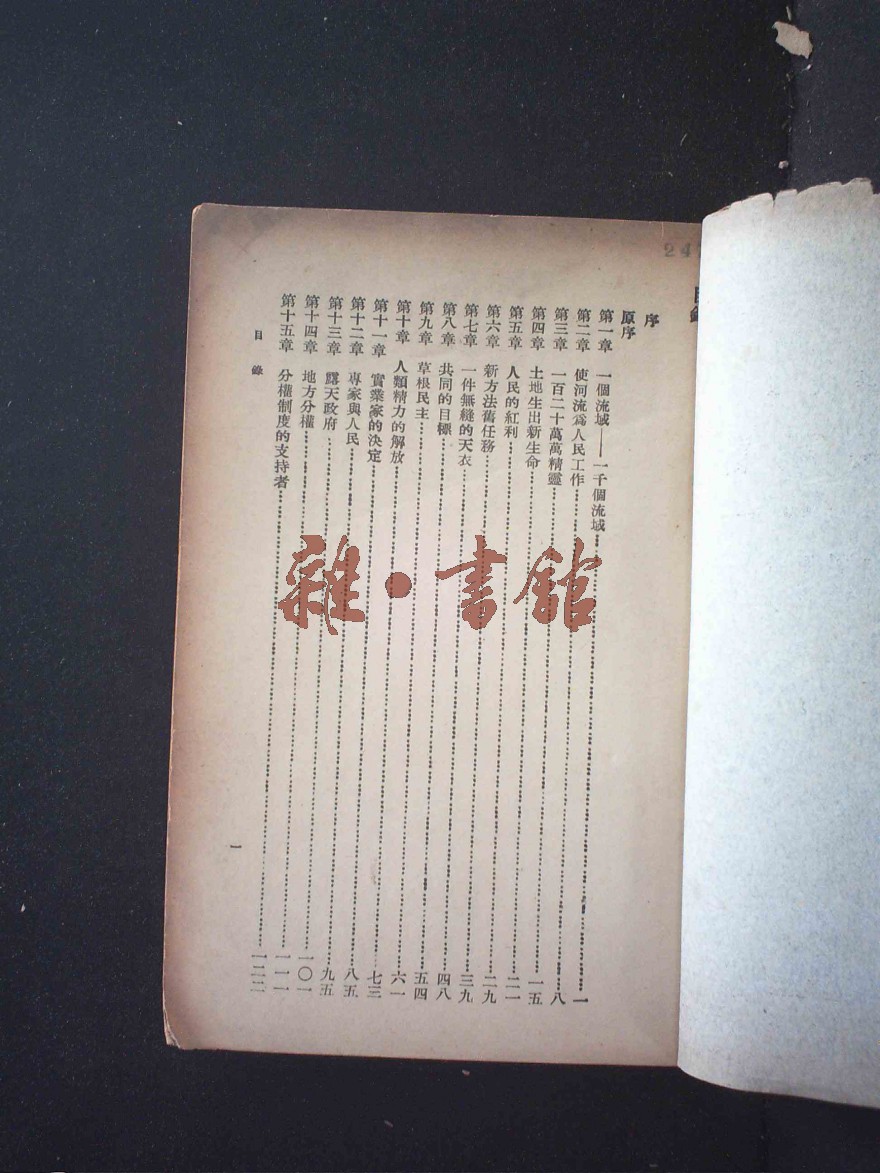 24
序
原序
第一章 一個流域——一千個流域……一
第二章 使河流爲人民工作……八
第三章 一百二十萬萬精靈……一五
第四章 土地生出新生命……二一
第五章 人民的紅利……二九
第六章 新方法舊任務……三九
第七章 一件無縫的天衣……四八
第八章 共同的目標……五四
第九章 草根民主……六一
第十章 人類精力的解放……七三
第十一章 實業家的決定……八五
第十二章 專家與人民……九五
第十三章 露天政府……一〇一
第十四章 地方分權……一一一
第十五章 分權制度的支持者……一二二
目錄
一
雜·書館